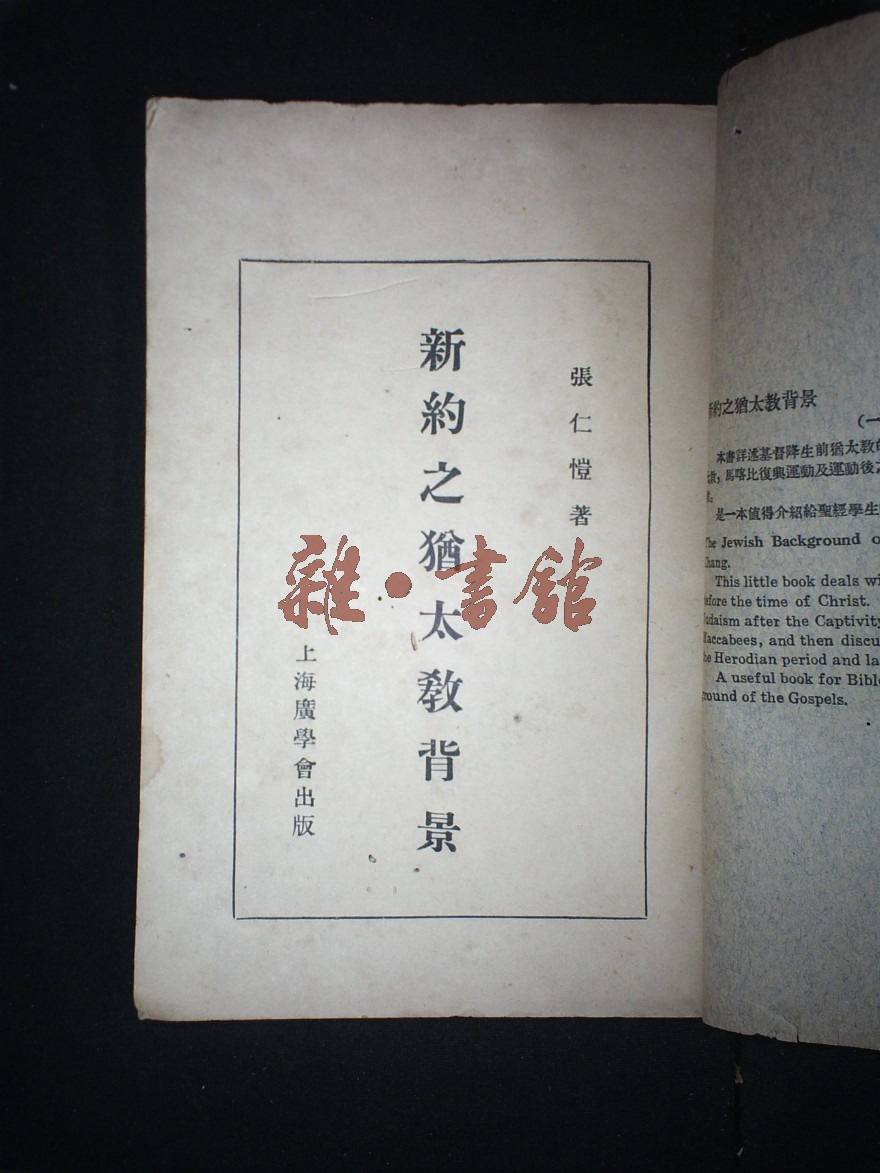 張仁愷著
新約之猶太教背景
上海廣學會出版
雜·書館
新約之猶太教背景
(一
本書詳述基督降生前猶太教的
馬喀比復興運動及運動後之
是一本值得介紹給聖經學生
The Jewish Background o
Chang.
This little book deals wi
before the time of Christ.
Judaism after the Captivity
Maccabees, and then discu
the Herodian period and la
A useful book for Bible
ground of the Gospels.